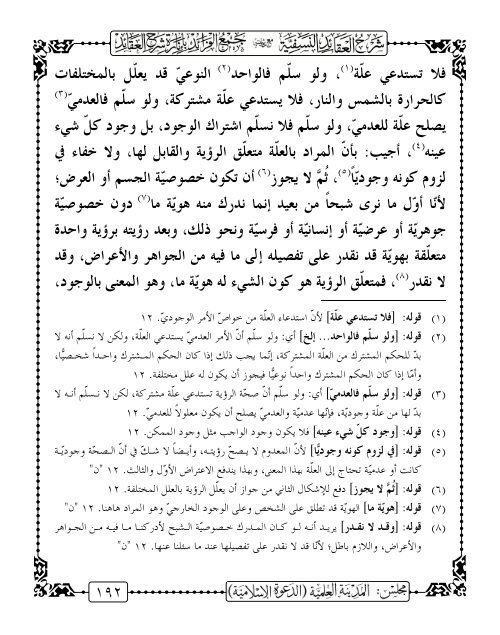 شرح العقائد النسفية مع جمع الفرائد بإنارة شرح العقائد
فلا تستدعي علّة(١)، ولو سلّم فالواحد(٢) النوعيّ قد يعلّل بالمختلفات
كالحرارة بالشمس والنار، فلا يستدعي علّة مشتركة، ولو سلّم فالعدميّ(٣)
يصلح علّة للعدميّ، ولو سلّم فلا نسلّم اشتراك الوجود، بل وجود كلّ شيء
عينه(٤)، أجيب: بأنّ المراد بالعلّة متعلّق الرؤية والقابل لها، ولا خفاء في
لزوم كونه وجوديّاً(٥)، ثُمَّ لا يجوز(٦) أن تكون خصوصيّة الجسم أو العرض؛
لأنّا أوّل ما نرى شبحاً من بعيد إنما ندرك منه هويّة ما(٧) دون خصوصيّة
جوهريّة أو عرضيّة أو إنسانيّة أو فرسيّة ونحو ذلك، وبعد رؤيته برؤية واحدة
متعلّقة بهويّة قد نقدر على تفصيله إلى ما فيه من الجواهر والأعراض، وقد
لا نقدر(٨)، فمتعلّق الرؤية هو كون الشيء له هويّة ما، وهو المعنى بالوجود،
(١) قوله: [فلا تستدعي علّة] لأنّ استدعاء العلّة من خواصّ الأمر الوجوديّ. ١٢
(٢) قوله: [ولو سلّم فالواحد... إلخ] أي: ولو سلّم أنّ الأمر العدميّ يستدعي العلّة، ولكن لا نسلّم أنه لا
بدّ للحكم المشترك من العلّة المشتركة، إنّما يجب ذلك إذا كان الحكم المشترك واحداً شخصيًّا،
وأمّا إذا كان الحكم المشترك واحداً نوعيًّا فيجوز أن يكون له علل مختلفة. ١٢
(٣) قوله: [ولو سلّم فالعدميّ] أي: ولو سلّم أنّ صحّة الرؤية تستدعي علّة مشتركة، لكن لا نسلّم أنه لا
بدّ لها من علّة وجوديّة، فإنّها عدميّة والعدميّ يصلح أن يكون معلولاً للعدميّ. ١٢
(٤) قوله: [وجود كلّ شيء عينه] فلا يكون وجود الواجب مثل وجود الممكن. ١٢
(٥) قوله: [في لزوم كونه وجوديًّا] لأنّ المعدوم لا يصحّ رؤيته، وأيضاً لا شكّ في أنّ الصحّة وجوديّة
كانت أو عدميّة تحتاج إلى العلّة بهذا المعنى، وبهذا يندفع الاعتراض الأوّل والثالث. ١٢ "ن"
(٦) قوله: [ثُمَّ لا يجوز] دفع للإشكال الثاني من جواز أن يعلّل الرؤية بالعلل المختلفة. ١٢
(٧) قوله: [هويّة ما] الهويّة قد تطلق على الشخص وعلى الوجود الخارجيّ وهو المراد هاهنا. ١٢ "ن"
(٨) قوله: [وقد لا نقدر] يريد أنه لو كان المدرك خصوصيّة الشبح لأدركنا ما فيه من الجواهر
والأعراض، واللازم باطل؛ لأنّا قد لا نقدر على تفصيلها عند ما سئلنا عنها. ١٢ "ن"
مجلس: المدينة العلمية (الدعوة الإسلامية)
١٩٢